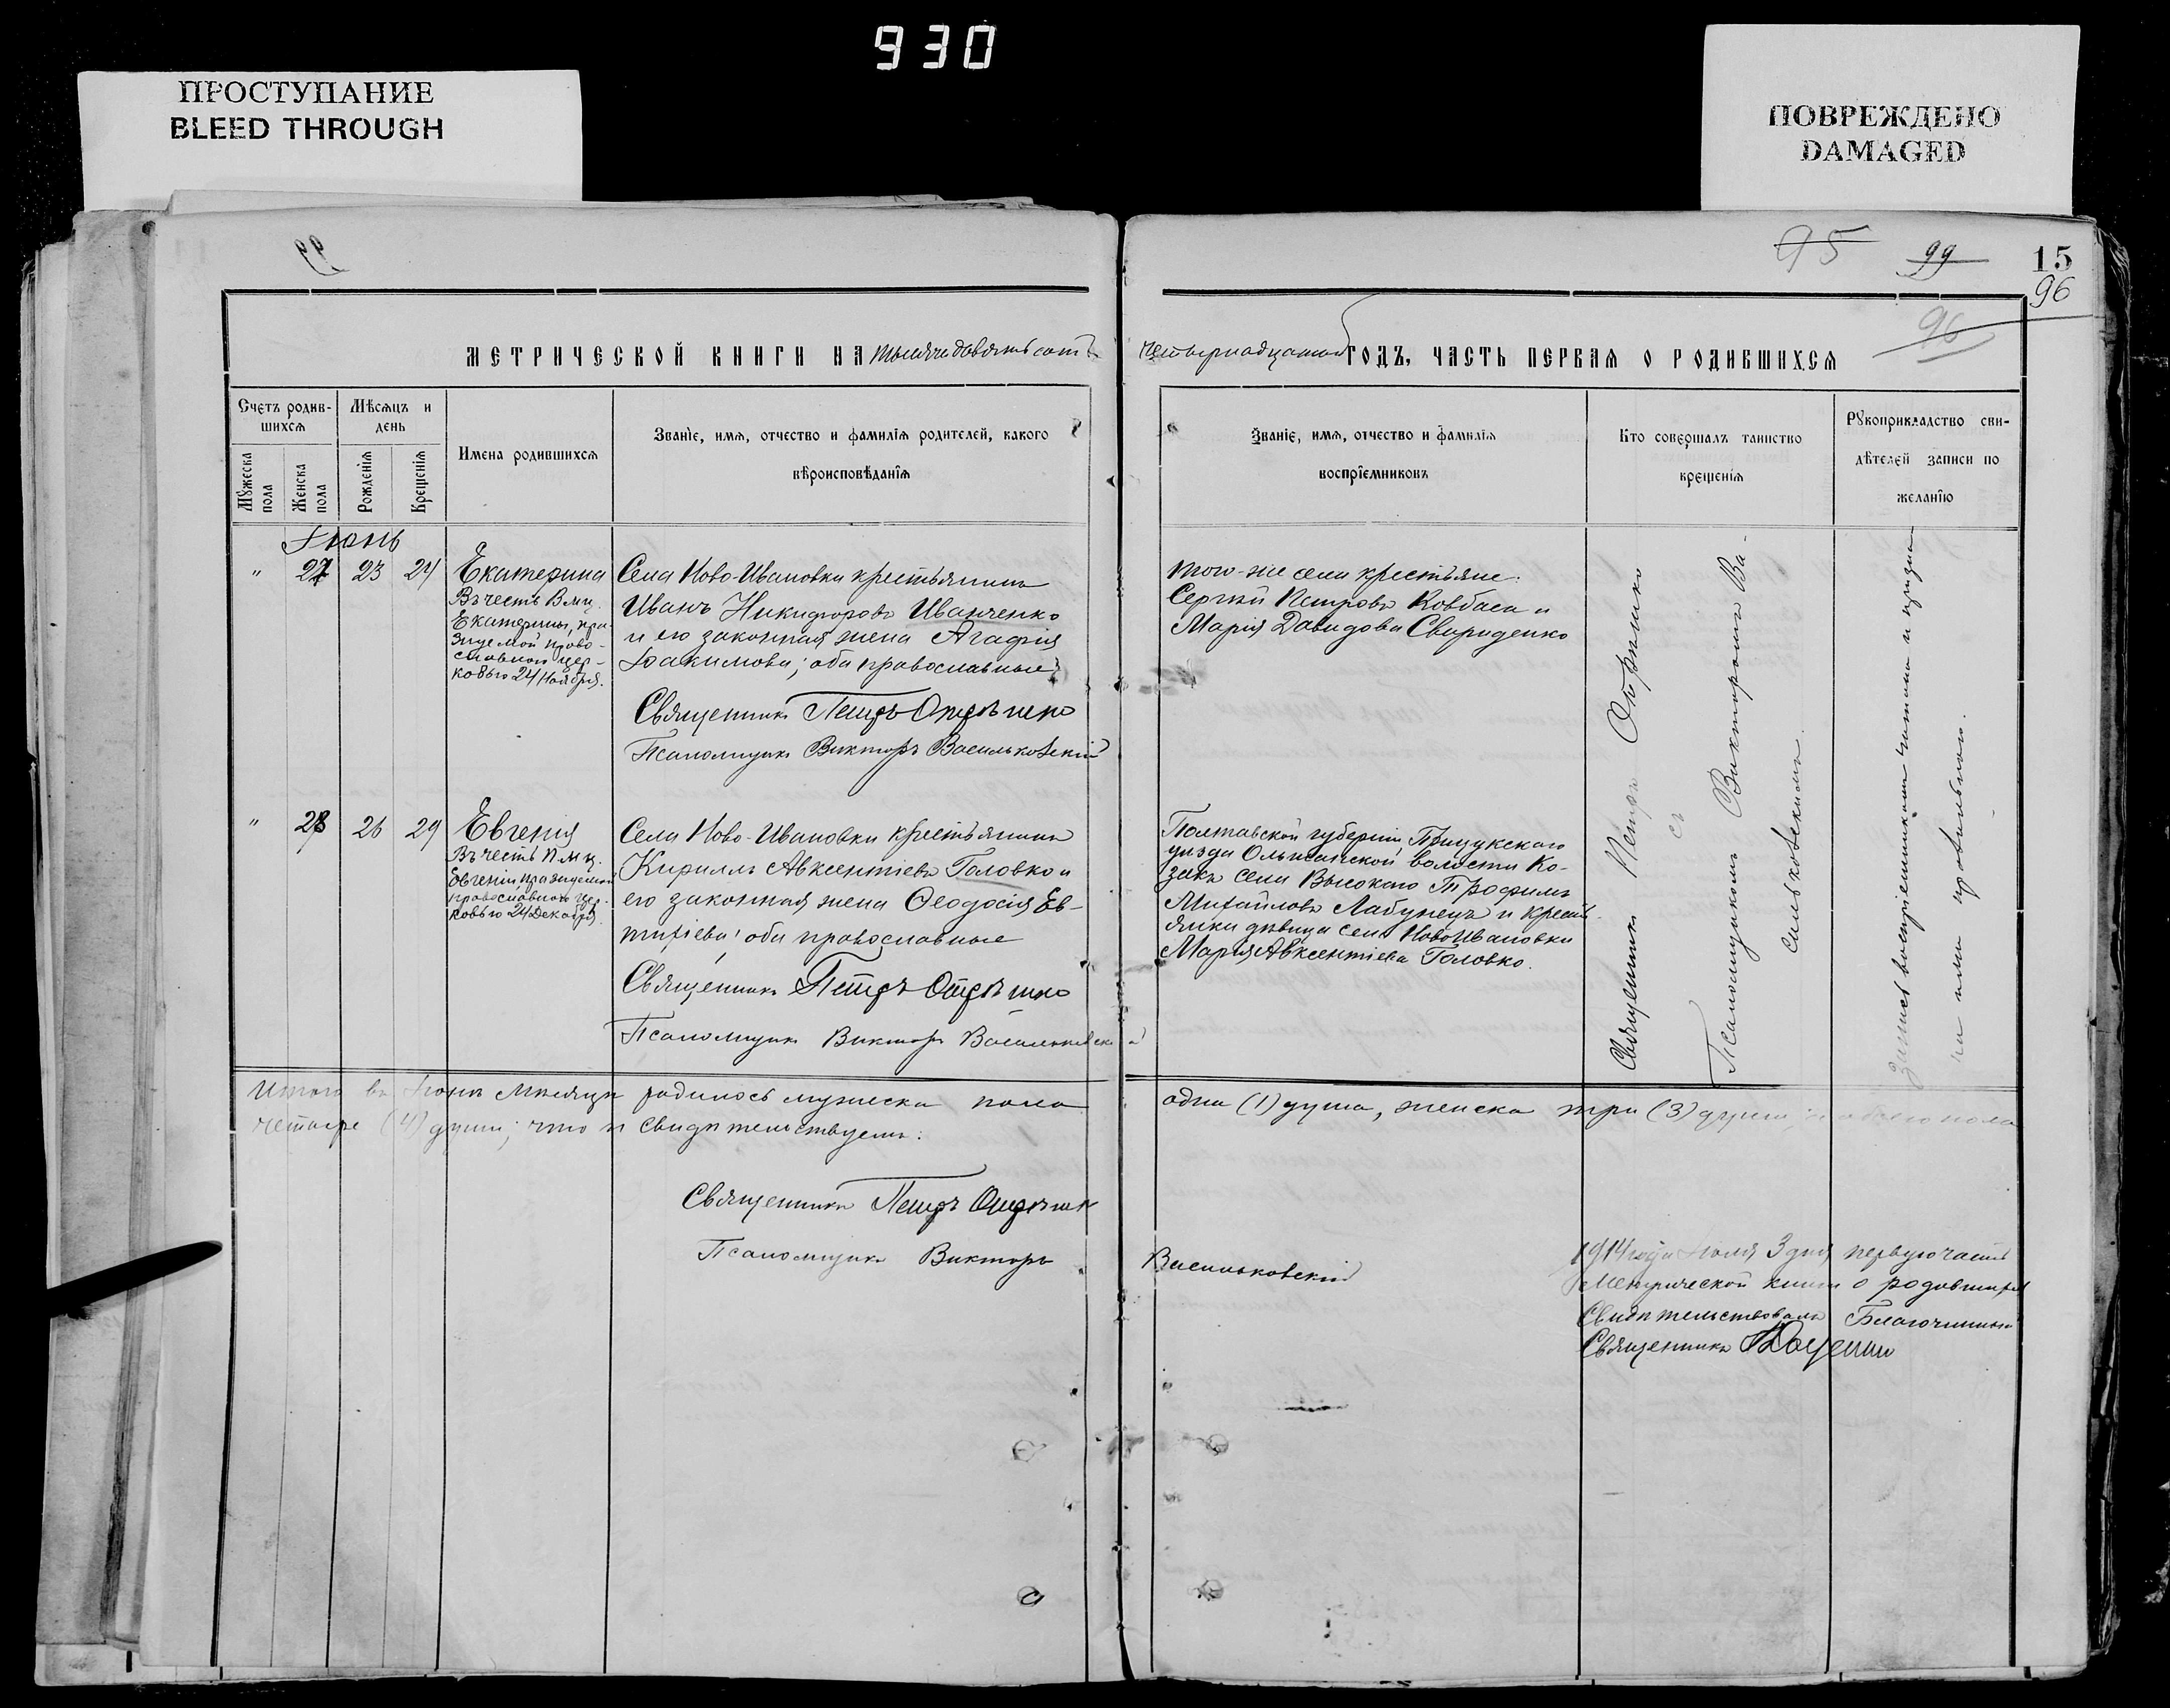 930
ПРОСТУПАНИЕ
BLEED THROUGH
ПОВРЕЖДЕНО
DAMAGED
95 99 15
96
96
МЕТРИЧЕСКОЙ КНИГИ НА тысяча девятьсотъ четырнадцатый ГОДЪ, ЧАСТЬ ПЕРВАЯ О РОДИВШИХСЯ
Счетъ родив-
шихся
Мужеска пола
Женска пола
Мѣсяцъ и
день
Рожденія
Крещенія
Имена родившихся
Званіе, имя, отчество и фамилія родителей, какого
вѣроисповѣданія
Званіе, имя, отчество и фамилія
воспріемниковъ
Кто совершалъ таинство
крещенія
Рукоприкладство сви-
дѣтелей записи по
желанію
Іюнь
" 27 23 24
Екатерина
Въ честь Вмц.
Екатерины, пра-
зднуемой право-
славною цер-
ковью 24 Ноября.
Села Ново-Ивановки крестьянинъ
Иванъ Никифоровъ Иванченко
и его законная жена Агафія
Іоакимова; оба православные
Священникъ Петръ Отрѣшко
Псаломщикъ Викторъ Васильковскій
того-же села крестьяне:
Сергѣй Петровъ Ковбаса и
Марія Давидова Свириденко
" 28 26 29
Евгенія
Въ честь Пмц.
Евгеніи празднуемой
православною цер-
ковью 24 Декабря.
Села Ново-Ивановки крестьянинъ
Кириллъ Авксентіевъ Головко и
его законная жена Ѳеодосія Ев-
тихіева; оба православные
Священникъ Петръ Отрѣшко
Псаломщикъ Викторъ Васильковскій
Полтавской губерніи, Прилукскаго
уѣзда Ольшанской волости Ко-
закъ села Высокаго Трофимъ
Михайловъ Лабунецъ и кресть-
янка дѣвица села Ново Ивановки
Марія Авксентіева Головко.
Священникъ Петръ Отрѣшко
съ
Псаломщикомъ Викторомъ Ва-
сильковскимъ.
Запись воспріемниками читана и призна-
на ими правильною.
Итого въ Іюнѣ мѣсяцѣ родилось мужеска пола одна (1) душа, женска три (3) души; а обоего пола
четыре (4) души; что и свидѣтельствуемъ:
Священникъ Петръ Отрѣшко
Псаломщикъ Викторъ Васильковскій
1914 года Іюля 3 дня первую часть
Метрической книги о родившихся
Свидѣтельствовалъ Благочинный
Священникъ